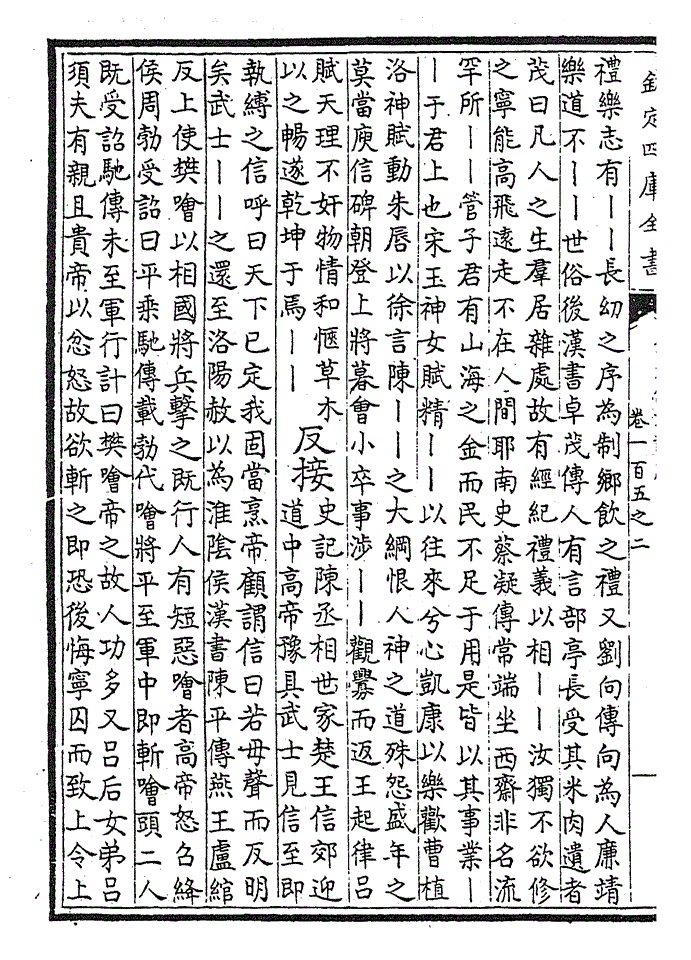 欽定四庫全書
卷一百五之二
禮樂志有丨丨長幼之序為制鄉飲之禮又劉向傳向為人廉靖
樂道不丨丨世俗後漢書卓茂傳人有言部亭長受其米肉遺者
茂曰凡人之生羣居雜處故有經紀禮義以相丨丨汝獨不欲修
之寧能高飛遠走不在人間耶南史蔡凝傳常端坐西齋非名流
罕所丨丨管子君有山海之金而民不足于用是皆以其事業丨
丨于君上也宋玉神女賦精丨丨以往來兮心凱康以樂歡曹植
洛神賦動朱唇以徐言陳丨丨之大綱恨人神之道殊怨盛年之
莫當庾信碑朝登上將暮會小卒事涉丨丨觀釁而返王起律呂
賦天理不奸物情和愜草木
以之暢遂乾坤于焉丨丨
反接
史記陳丞相世家楚王信郊迎
道中高帝豫具武士見信至即
執縛之信呼曰天下已定我固當烹帝顧謂信曰若毋聲而反明
矣武士丨丨之還至洛陽赦以為淮陰侯漢書陳平傳燕王盧綰
反上使樊噲以相國將兵擊之既行人有短惡噲者高帝怒召絳
侯周勃受詔曰平乘馳傳載勃代噲將平至軍中即斬噲頭二人
既受詔馳傳未至軍行計曰樊噲帝之故人功多又呂后女弟呂
須夫有親且貴帝以忿怒故欲斬之即恐後悔寧囚而致上令上